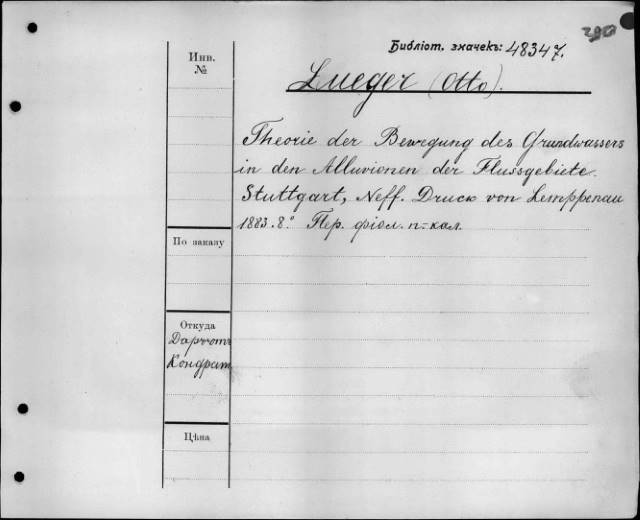 Библіот. значекъ: 48347.
Инв.
№
Lueger (Otto).
Theorie der Bewegung des Grundwassers
in den Alluvionen der Flussgebiete.
Stuttgart, Neff. Druck von Lemppenau
1883. 8.° Пер. фіол. п.-кал.
По заказу
Откуда
Кондрат
Цѣна